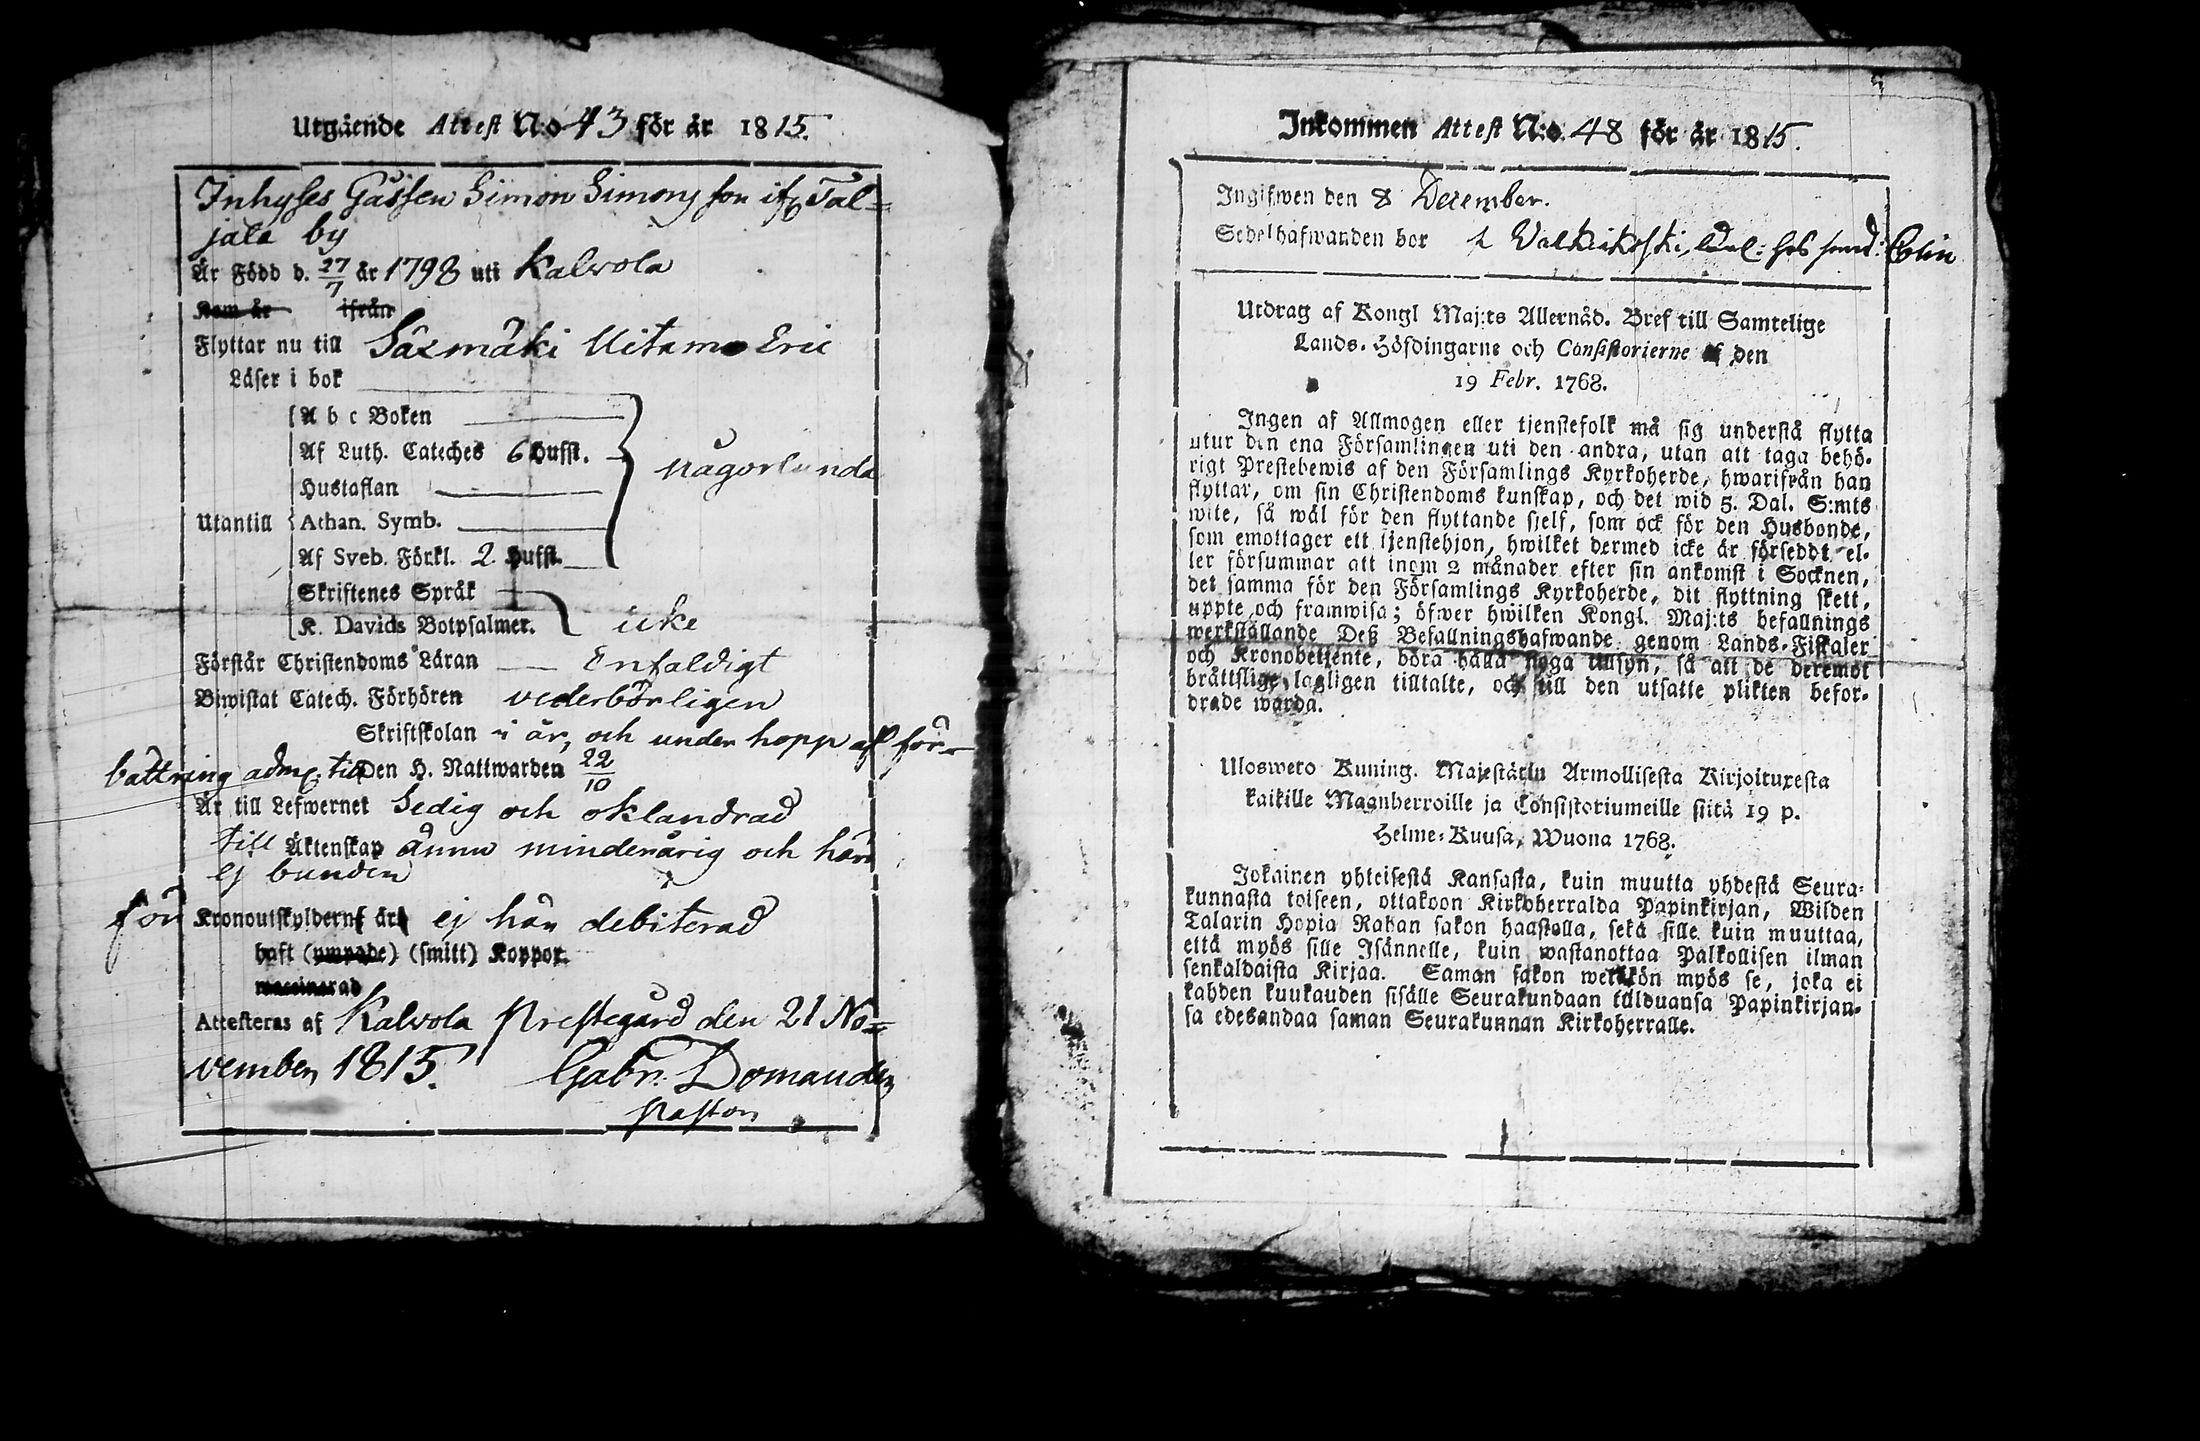 Utgående Attest N:o 43 för år 1815.
Inhyses Gåssen Simon Simonsson ifr. Tal=
jala by
Är Född d. 27/7 år 1798 uti Kalvola
Kom år ifrån
Flyttar nu till Säxmäki Uitamo Eric
Läser i bok
A b c Boken
Af Luth. Cateches 6 Hufst.
någorlunda
Hustaflan
Utantill Athan. Symb.
Af Sveb. Förkl. 2 Hufst.
Skriftenes Språk
K. Davids Botpsalmer. icke
Förstår Christendoms Läran Enfaldigt
Biwistat Catech. Förhören vederbörligen
Skriftskolan i år, och under hopp af för=
bättring adm. till Den H. Nattwarden 22/10
Är till Lefwernet Ledig och oklandrad
till Äktenskap ännu minderårig och här
ej bunden
för Kronoutskylderne är ej här debiterad
haft (ympade) (smitt) Koppor.
waccinerad
Attesteras af Kalvola Prestegård den 21 No=
vember 1815. Gabr. Domander
Pastor
Inkommen Attest N:o 48 för år 1815.
Ingifwen den 8 December.
Sedelhafwanden bor i Walkiakoski, hos Colin
Utdrag af Kongl Maj:ts Allernåd. Bref till Samtelige
Lands-Höfdingarne och Consistorierne af den
19 Febr. 1768.
Ingen af Allmogen eller tjenstefolk må sig understå flytta
utur den ena Församlingen uti den andra, utan att taga behö-
rigt Prestebewis af den Församlings Kyrkoherde, hwarifrån han
flyttar, om sin Christendoms kunskap, och det wid 5. Dal. S:mts
wite, så wäl för den flyttande sjelf, som ock för den Husbonde,
som emottager ett tjenstehjon, hwilket dermed icke är försedt el-
ler försummar att inom 2 månader efter sin ankomst i Socknen,
det samma för den Församlings Kyrkoherde, dit flyttning skett,
uppte och framwisa; öfwer hwilken Kongl. Maj:ts befallnings
werkställande Deß Befallningshafwande genom Lands-Fiskaler
och Kronobetjente, böra hålla noga tillsyn, så att de deremot
bråttslige lagligen tilltalte, och till den utsatte plikten befor-
drade warda.
Uloswero Kuning. Majestätin Armollisesta Kirjoituxesta
kaikille Maanherroille ja Consistoriumeille siitä 19 p.
Helme-Kuusa, Wuona 1768.
Jokainen yhteisestä Kansasta, kuin muutta yhdestä Seura-
kunnasta toiseen, ottakoon Kirkoherralda Papinkirjan, Wiiden
Talarin Hopia Rahan sakon haastolla, sekä sille kuin muuttaa,
että myös sille Isännelle, kuin wastanottaa Palkollisen ilman
senkaldaista Kirjaa. Saman sakon wetäkön myös se, joka ei
kahden kuukauden sisälle Seurakundaan tulduansa Papinkirjan-
sa edesandaa saman Seurakunnan Kirkoherralle.